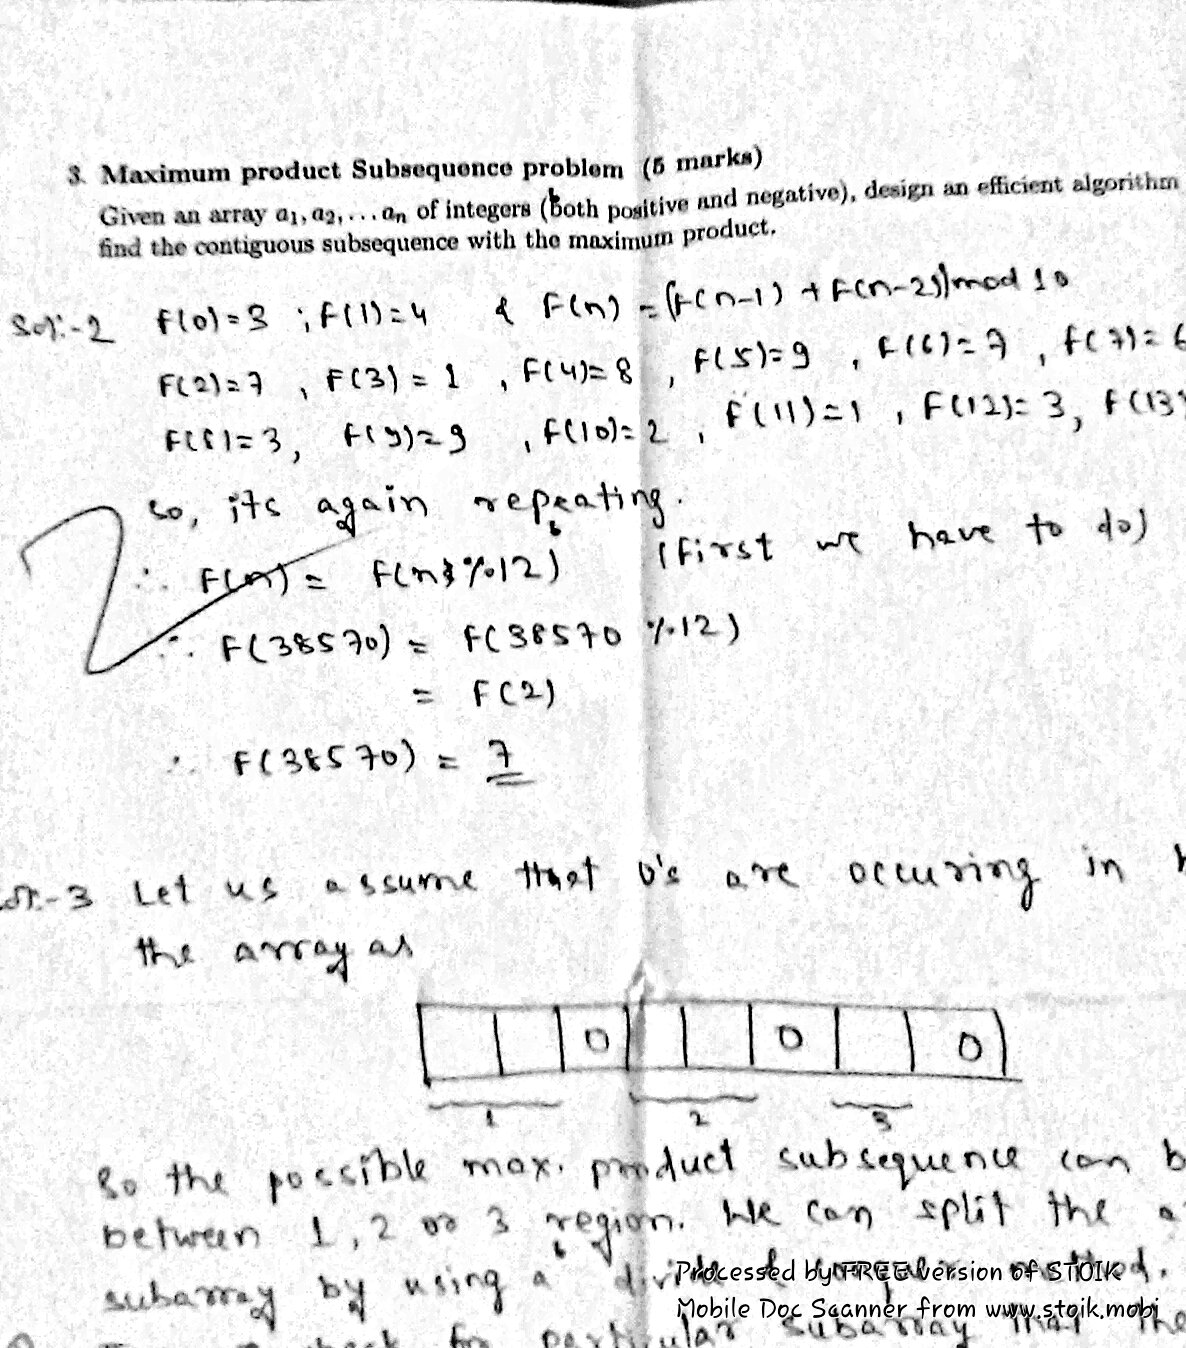 3. Maximum product Subsequence problem (5 marks)
Given an array a₁, a₂, ... aₙ of integers (both positive and negative), design an efficient algorithm
find the contiguous subsequence with the maximum product.
Sol:-2 F(0)=3 ; F(1)=4 & F(n) = (F(n-1) + F(n-2)) mod 10
F(2)=7 , F(3)=1 , F(4)=8 , F(5)=9 , F(6)=7 , F(7)=6
F(8)=3, F(9)=9 , F(10)=2 , F(11)=1 , F(12)=3, F(13)
so, its again repeating.
∴ F(n) = F(n%12) (First we have to do)
∴ F(38570) = F(38570 %12)
= F(2)
∴ F(38570) = 7
-3 Let us assume that 0's are occuring in
the array as
0 0 0
1 2 3
So the possible max. product subsequence can b
between 1, 2 or 3 region. We can split the a
subarray by using a divide
Processed by FREE version of STOIK
Mobile Doc Scanner from www.stoik.mobi
subarray that the